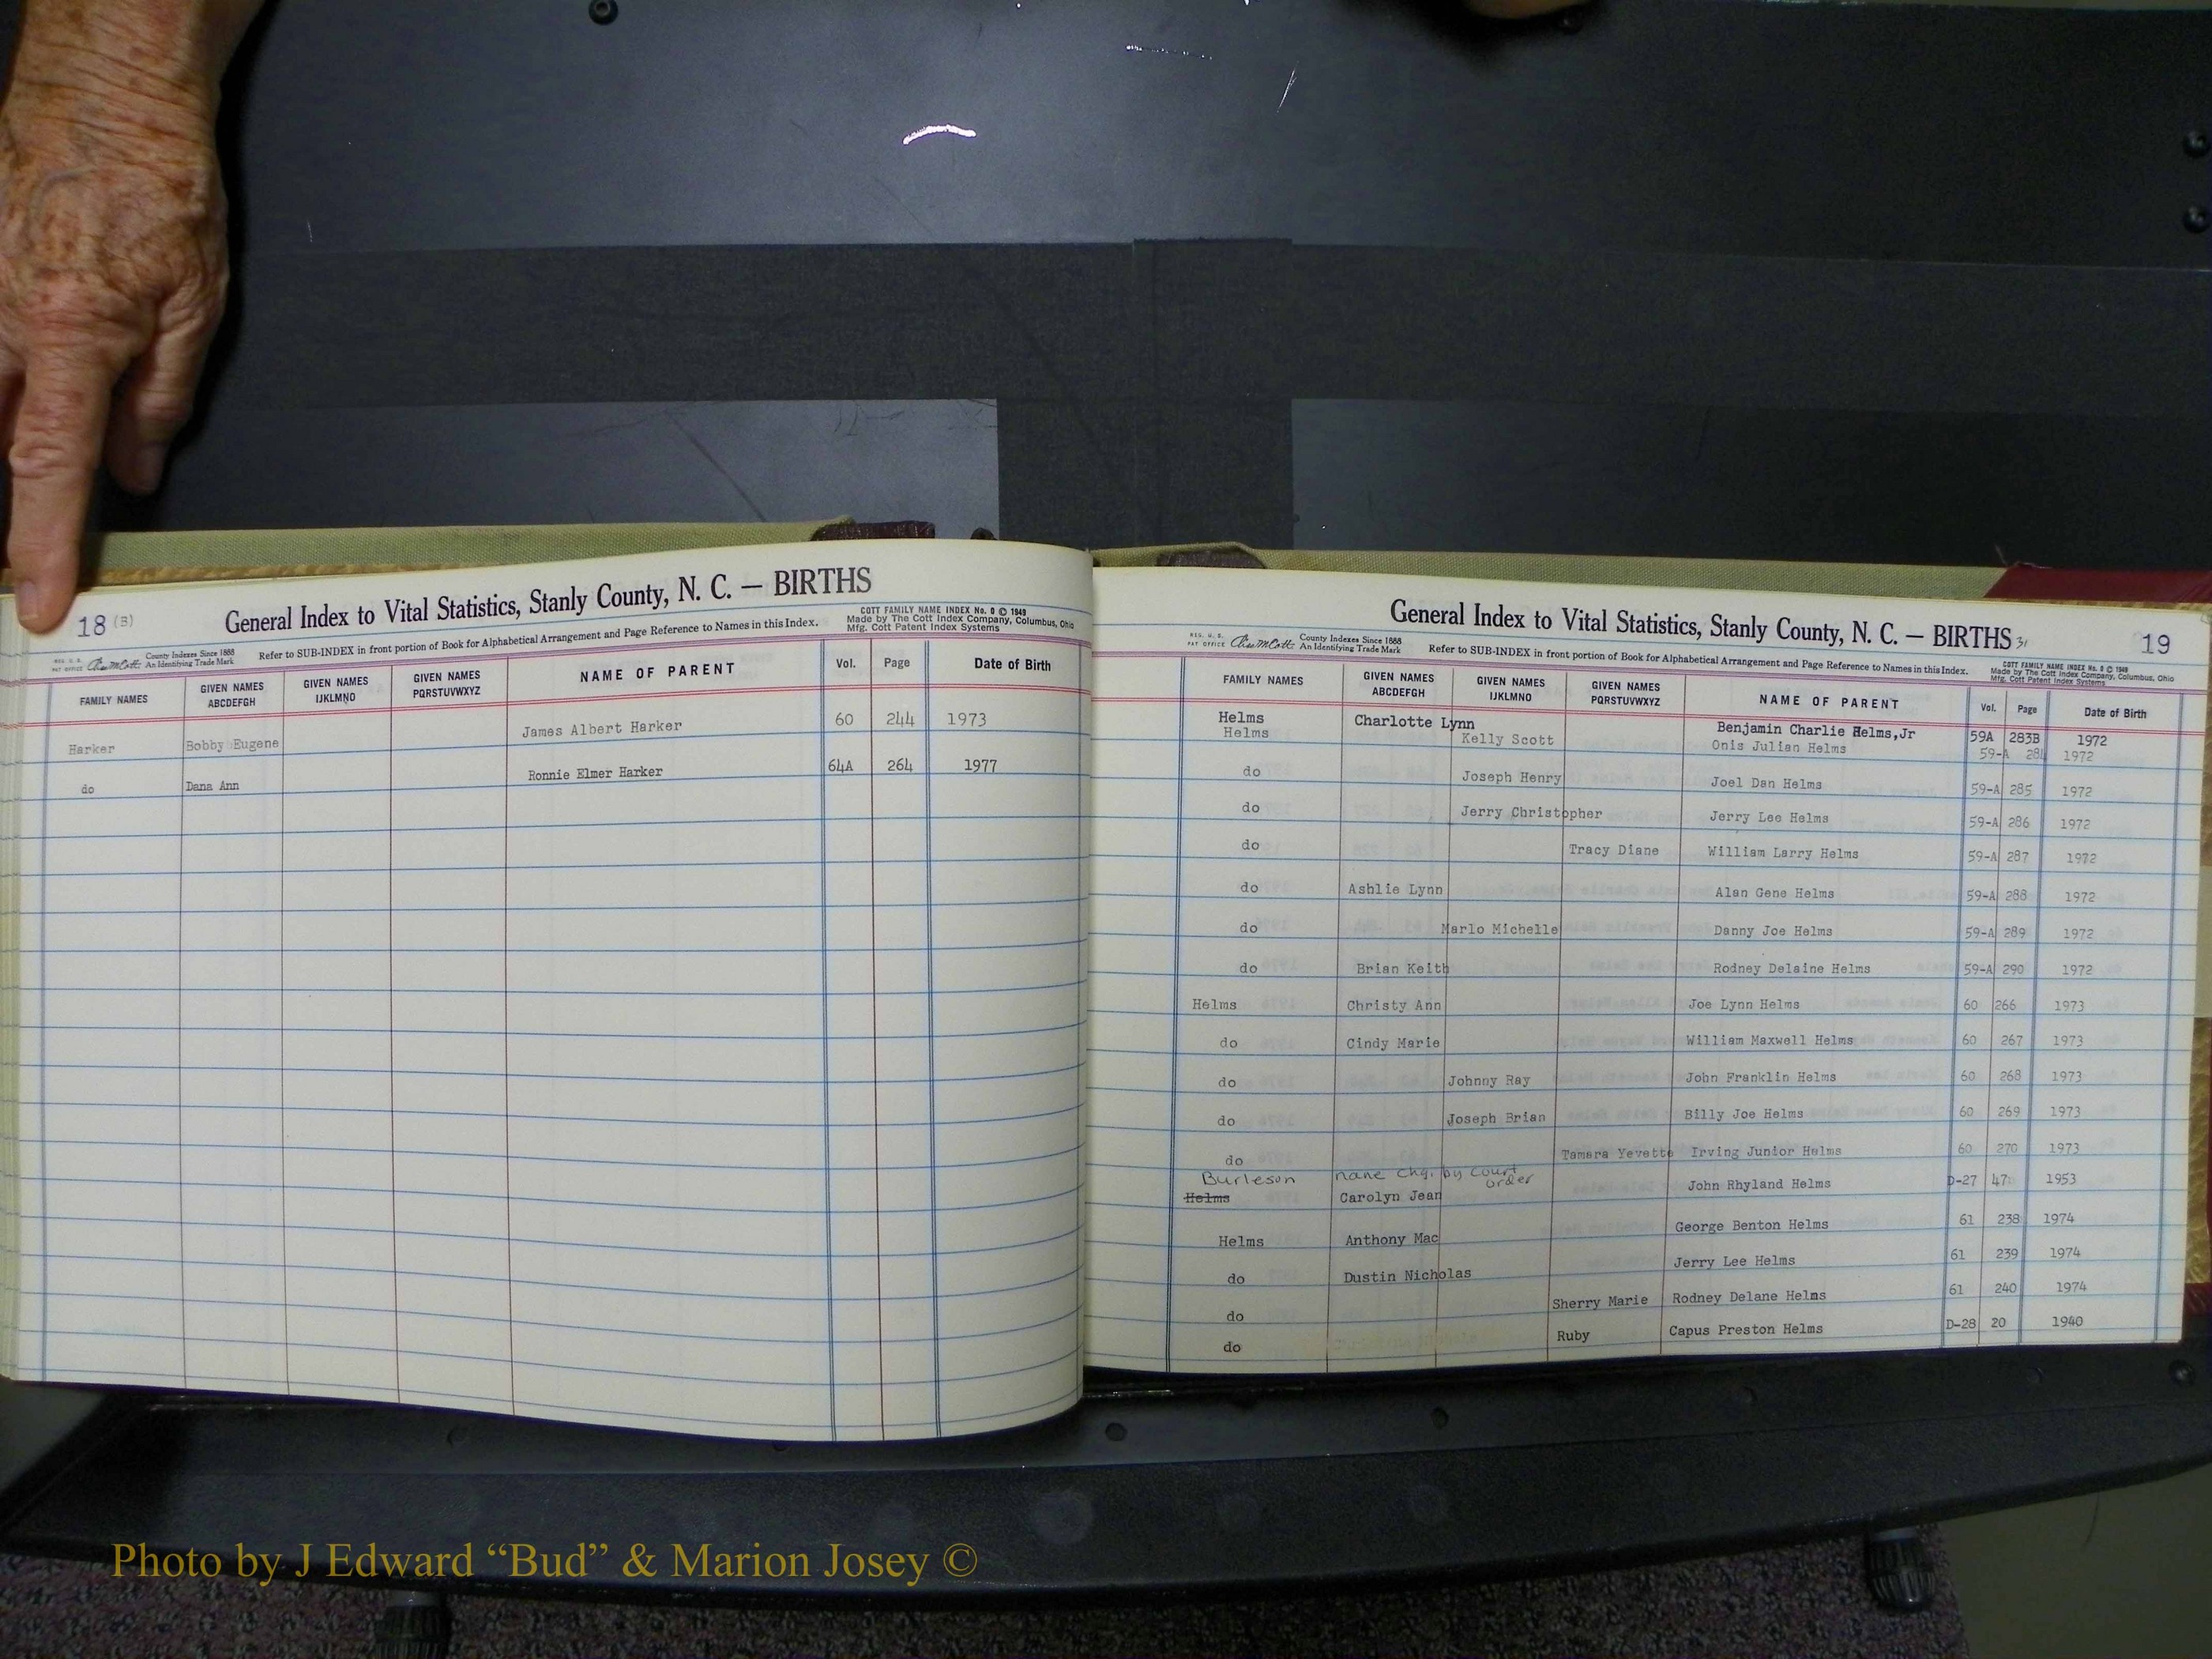 18 (B)
General Index to Vital Statistics, Stanly County, N. C. — BIRTHS
COTT FAMILY NAME INDEX No. 0 © 1949
Made by The Cott Index Company, Columbus, Ohio
Mfg. Cott Patent Index Systems
REG. U. S. PAT OFFICE County Indexes Since 1888
An Identifying Trade Mark
Refer to SUB-INDEX in front portion of Book for Alphabetical Arrangement and Page Reference to Names in this Index.
FAMILY NAMES GIVEN NAMES ABCDEFGH GIVEN NAMES IJKLMNO GIVEN NAMES PQRSTUVWXYZ NAME OF PARENT Vol. Page Date of Birth
Harker Bobby Eugene James Albert Harker 60 244 1973
do Dana Ann Ronnie Elmer Harker 64A 264 1977
General Index to Vital Statistics, Stanly County, N. C. — BIRTHS 31
19
REG. U. S. PAT OFFICE County Indexes Since 1888
An Identifying Trade Mark
Refer to SUB-INDEX in front portion of Book for Alphabetical Arrangement and Page Reference to Names in this Index.
COTT FAMILY NAME INDEX No. 0 © 1949
Made by The Cott Index Company, Columbus, Ohio
Mfg. Cott Patent Index Systems
FAMILY NAMES GIVEN NAMES ABCDEFGH GIVEN NAMES IJKLMNO GIVEN NAMES PQRSTUVWXYZ NAME OF PARENT Vol. Page Date of Birth
Helms Charlotte Lynn Benjamin Charlie Helms,Jr 59A 283B 1972
Helms Kelly Scott Onis Julian Helms 59-A 284 1972
do Joseph Henry Joel Dan Helms 59-A 285 1972
do Jerry Christopher Jerry Lee Helms 59-A 286 1972
do Tracy Diane William Larry Helms 59-A 287 1972
do Ashlie Lynn Alan Gene Helms 59-A 288 1972
do Marlo Michelle Danny Joe Helms 59-A 289 1972
do Brian Keith Rodney Delaine Helms 59-A 290 1972
Helms Christy Ann Joe Lynn Helms 60 266 1973
do Cindy Marie William Maxwell Helms 60 267 1973
do Johnny Ray John Franklin Helms 60 268 1973
do Joseph Brian Billy Joe Helms 60 269 1973
do Tamara Yevette Irving Junior Helms 60 270 1973
Burleson name chg. by court order
Helms Carolyn Jean John Rhyland Helms D-27 47 1953
Helms Anthony Mac George Benton Helms 61 238 1974
do Dustin Nicholas Jerry Lee Helms 61 239 1974
do Sherry Marie Rodney Delane Helms 61 240 1974
do Ruby Capus Preston Helms D-28 20 1940
Photo by J Edward “Bud” & Marion Josey ©